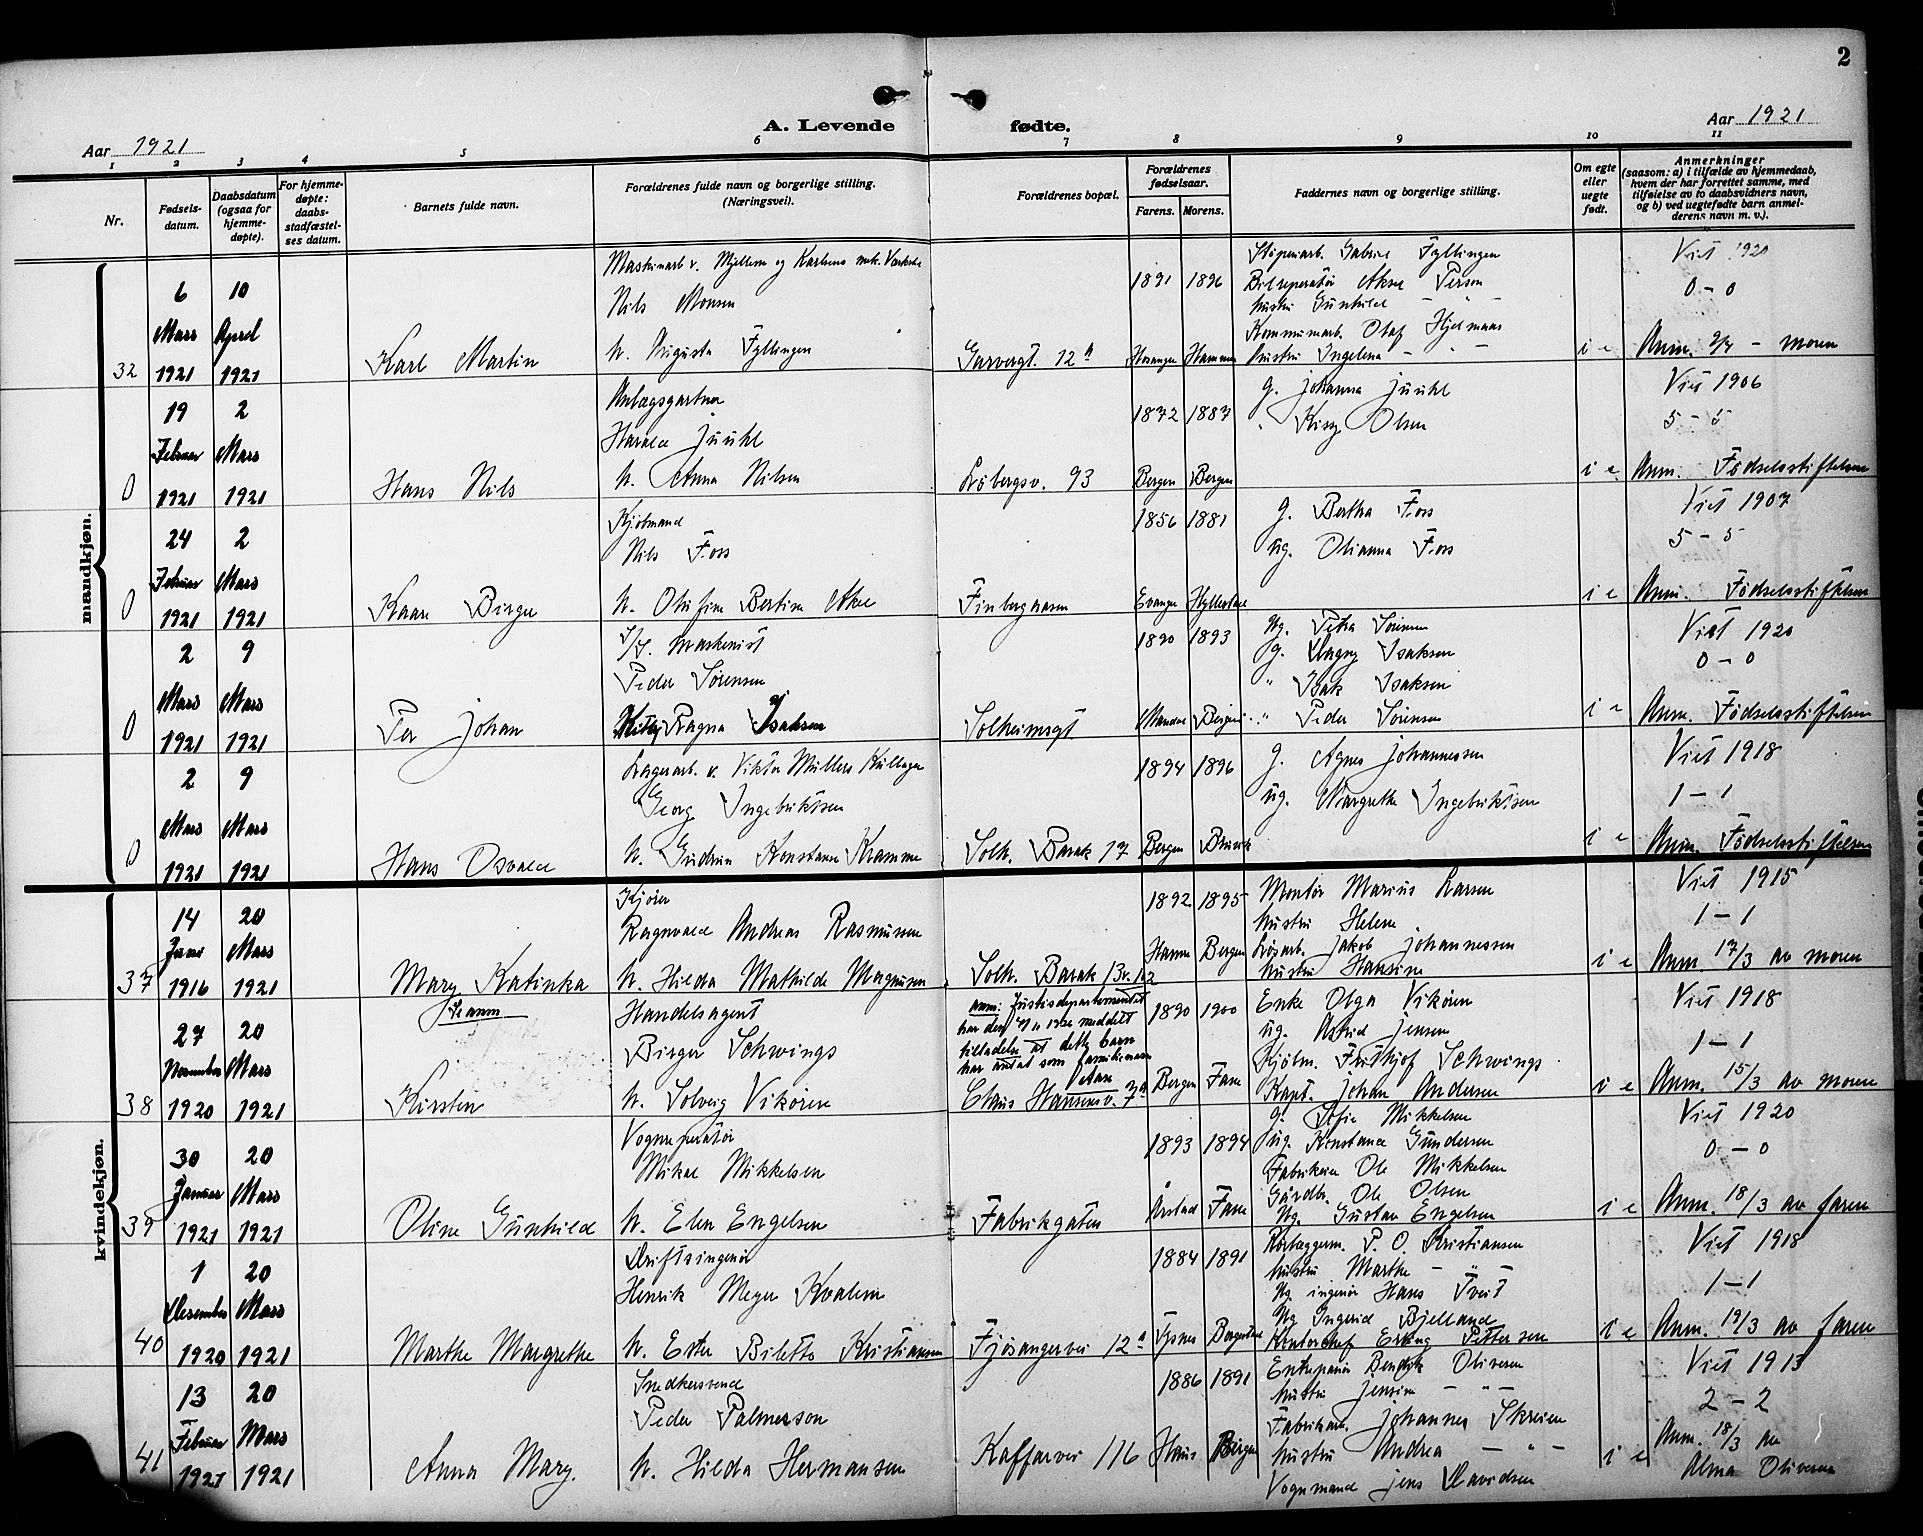 2
Aar 1921
A. Levende fødte.
Aar 1921
1 2 3 4 5 6 7 8 9 10 11
Nr.
Fødsels-
datum.
Daabsdatum
(ogsaa for
hjemme-
døpte).
For hjemme-
døpte:
daabs-
stadfæstel-
ses datum.
Barnets fulde navn.
Forældrenes fulde navn og borgerlige stilling.
(Næringsvei).
Forældrenes bopæl.
Forældrenes
fødselsaar.
Farens. Morens.
Faddernes navn og borgerlige stilling.
Om egte
eller
uegte
født.
Anmerkninger
(saasom: a) i tilfælde av hjemmedaab,
hvem der har forrettet samme, med
tilføielse av to daabsvidners navn,
og b) ved uegtefødte barn anmel-
derens navn m. v.).
mandkjøn.
32
6 Mars 1921
10 April 1921
Karl Martin
Maskinarb. v. Mjellem og Karlsens mek. Værksted
Nils Monsen
h. Augusta Fyllingen
Garvergt. 12 a
1891 1896
Hosanger Hammer
Støperiarb. Gabriel Fyllingen
Bilreperatør Aksel Person
hustru Gunhild - " -
Kommunearb. Olaf Hjelmaas
hustru Ingelena - " -
i e
Viet 1920
0 - 0
Anm. 2/4 - moren
0
19 Februar 1921
2 Mars 1921
Hans Nils
Anlægsgartner
Harald Juuhl
h. Anna Nilsen
Løbergsv. 93
1872 1887
Bergen Bergen
g. Johanna Juuhl
" Kissy Olsen
i e
Viet 1906
5 - 5
Anm. Fødselsstiftelsen
0
24 Februar 1921
2 Mars 1921
Kaare Birger
Kjøbmand
Nils Foss
h. Olufine Bertine Ake
Finbergaasen
1856 1881
Evanger Hyllestad
g. Bertha Foss
ug. Olianna Foss
i e
Viet 1907
5 - 5
Anm. Fødselsstiftelsen
0
2 Mars 1921
9 Mars 1921
Per Johan
S/S. maskinist
Peder Sørensen
Kitty Ragna Isaksen
Solheimsgt
1890 1893
Mandal Bergen
Ug. Petra Sørensen
g. Dagny Isaksen
" Isak Isaksen
" Peder Sørensen
i e
Viet 1920
0 - 0
Anm. Fødselsstiftelsen
0
2 Mars 1921
9 Mars 1921
Hans Osvald
Lagerarb. v. Viktor Müllers Kullager
Georg Ingebriktsen
h. Gudrun Konstanse Kramme
Solh. Barak 17
1894 1896
Bergen
g. Agnes Johannessen
ug. Margrethe Ingebriktsen
i e
Viet 1918
1 - 1
Anm. Fødselsstiftelsen
kvindekjøn.
37
14 Juni 1916
20 Mars 1921
Mary Katinka
Kjører
Ragnvald Andreas Rasmussen
h. Hilda Mathilde Magnusen
Solh. Barak 13 v. 102
1892 1895
Hamre Bergen
Montør Marius Larsen
hustru Helene
Løsarb. Jakob Johannessen
hustru Hansine
i e
Viet 1915
1 - 1
Anm. 17/3 av moren
38
27 November 1920
20 Mars 1921
Kirsten
Handelsagent
Birger Schwings
h. Solveig Vikøren
anm: Justisdepartementet
har den meddelt
tilladelse at dette barn
har antat som familienavn
Claus Hansens v. 7 a
1890 1900
Bergen Fane
Enke Olga Vikøren
ug. Astrid Jensen
Kjøbm. Fritthjof Schwings
Kapt. Johan Andersen
i e
Viet 1918
1 - 1
Anm. 15/3 av moren
39
30 Januar 1921
20 Mars 1921
Oline Gunhild
Vognreperatør
Mikal Mikkelsen
h. Elen Engelsen
Fabrikgaten
1893 1894
Årstad Fane
g. Sofie Mikkelsen
ug. Konstanse Gundersen
Fabrikeier Ole Mikkelsen
Gårdbr. Ole Olsen
Ug. Gustav Engelsen
i e
Viet 1920
0 - 0
Anm. 18/3 av faren
40
1 Desember 1920
20 Mars 1921
Marthe Margrethe
Driftsingeniør
Henrik Meyer Kvalem
h. Ester Biletto Kristiansen
Fjøsangervei 12 a
1884 1891
Tysnes
Rørlæggerm. P. O. Kristiansen
hustru Marthe - " -
Ug. ingeniør Hans Tveit
Ug Ingerid Bjelland
Kontorchef Erling Pettersen
i e
Viet 1918
1 - 1
Anm. 19/3 av faren
41
13 Februar 1921
20 Mars 1921
Anna Mary.
Snedkersvend
Peder Palmerson
h. Hilda Hermansen
Kaffarvei 116
1886 1891
Haus Bergen
Entreprenør Bendik Oliversen
hustru Jensine - " -
Fabrikarb. Johannes Skreien
hustru Andrea - " -
Vognmand Jens Davidsen
i e
Viet 1913
2 - 2
Anm. 18/3 av
Alma Oliversen